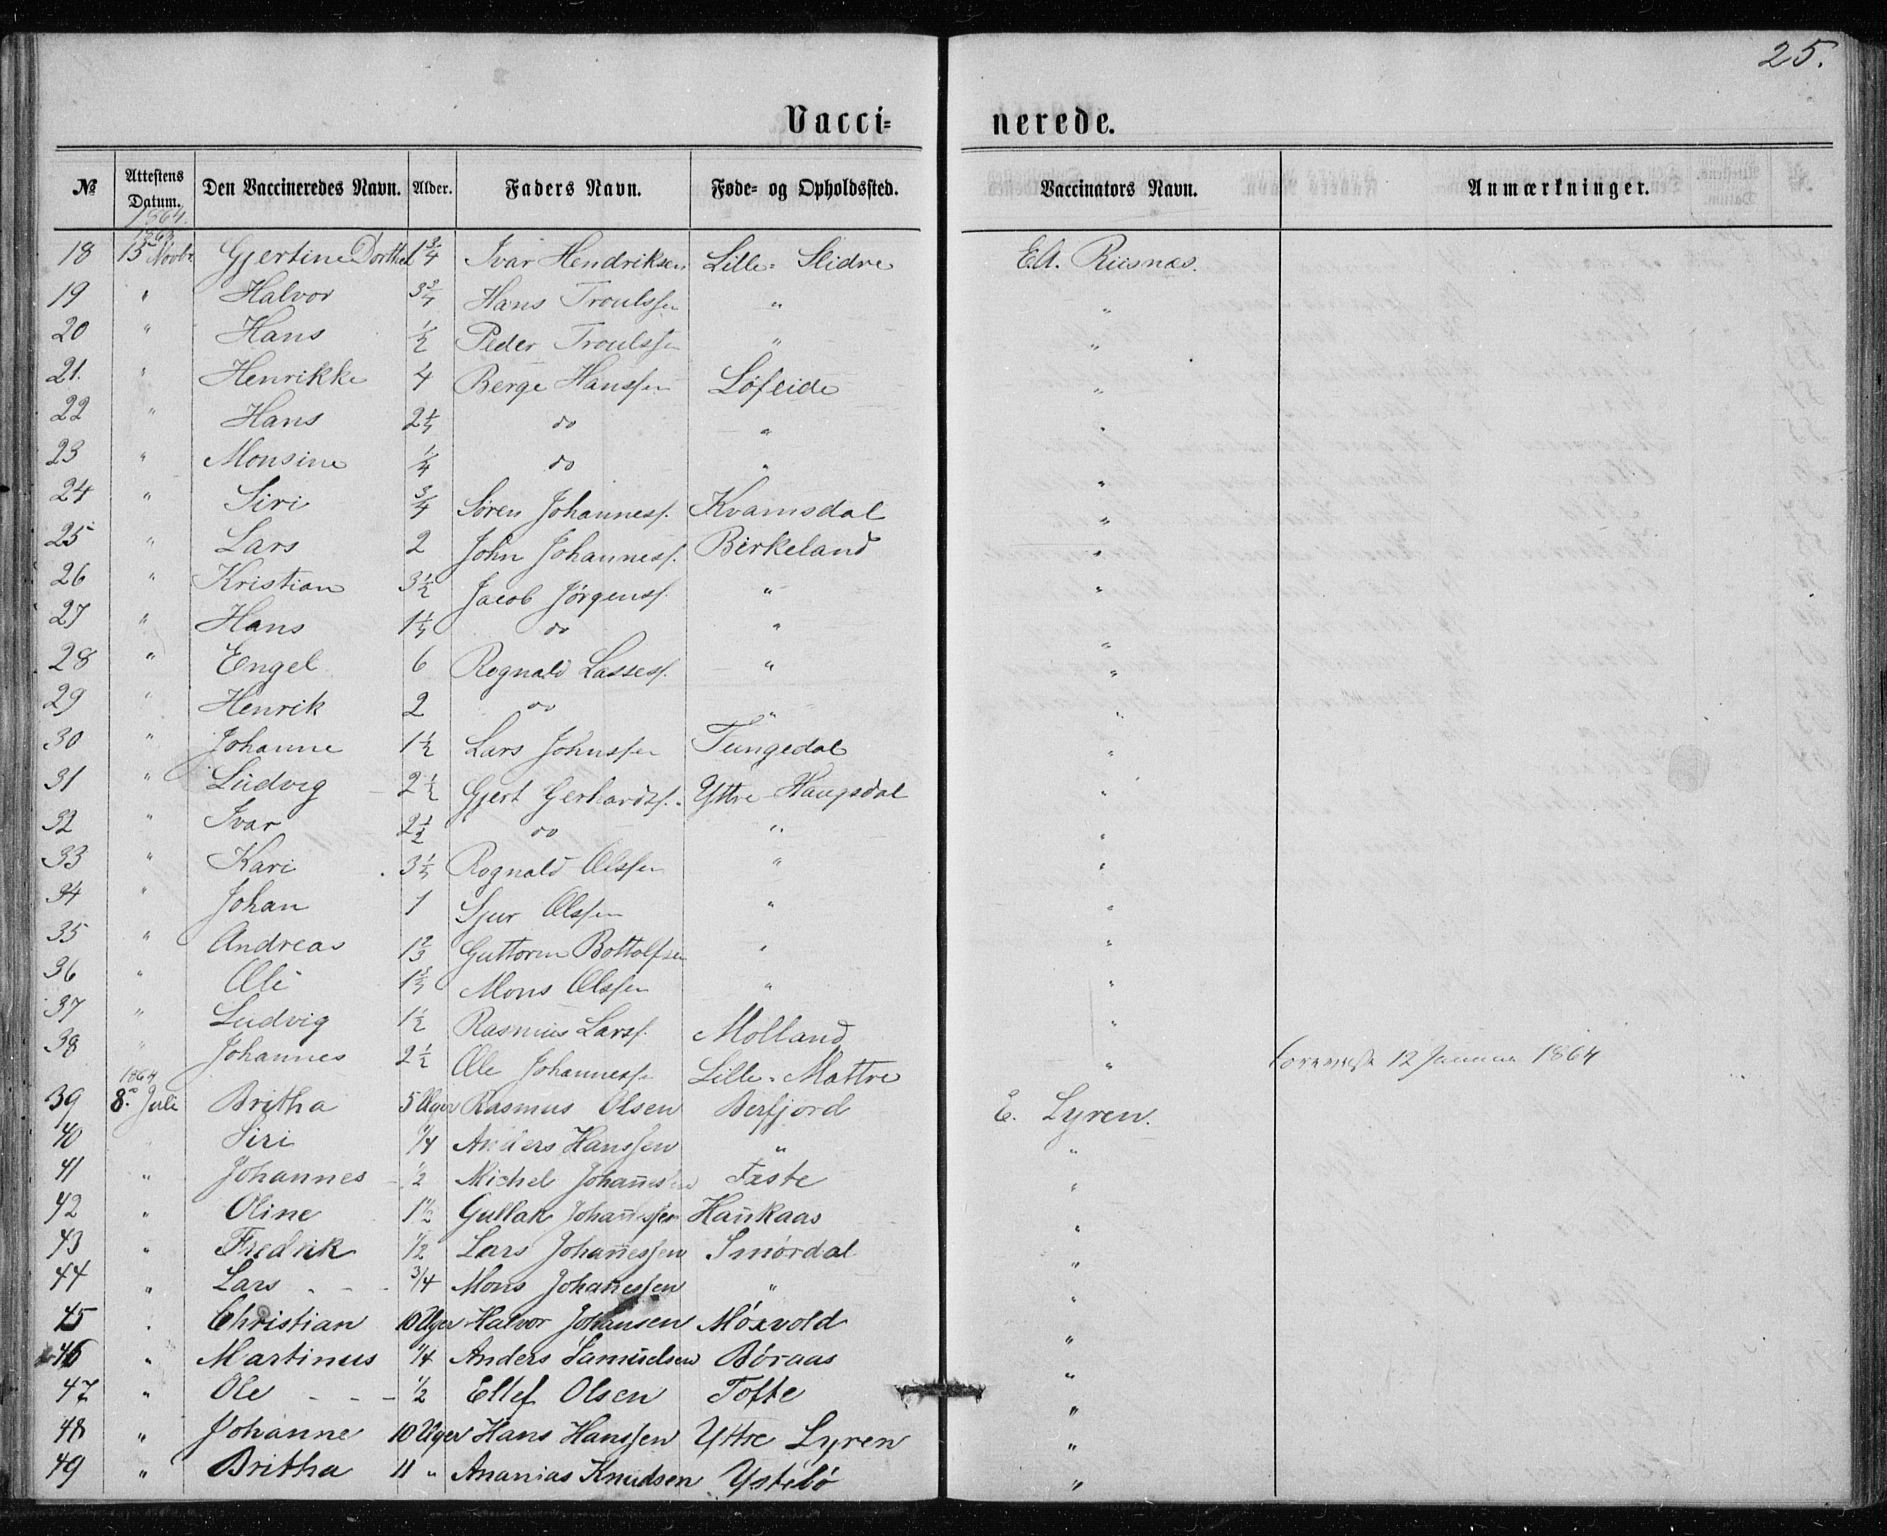 25.
Vacci= nerede.
№ Attestens Datum. Den Vaccineredes Navn. Alder. Faders Navn. Føde= og Opholdssted. Vaccinators Navn. Anmærkninger.
1864.
1863
18 15 Novbr Gjertine Dorthea 1 3/4 Ivar Hendriksen Lille= Slidre E.A. Riisnæs.
19 " Halvor 3 3/4 Hans Troulssen " "
20 " Hans 1/2 Peder Troulssen " "
21. " Henrikke 4 Berge Hanssen Lofeide "
22 " Hans 2 1/4 do " "
23 " Monsine 1/4 do " "
24 " Siri 3/4 Søren Johanness. Kvamsdal "
25 " Lars 2 John Johanness. Birkeland "
26 " Kristian 3 1/2 Jacob Jörgenss. " "
27 " Hans 1 1/4 do " "
28 " Engel 6 Rognald Lassess. " "
29 " Henrik 2 do " "
30 " Johanne 1 1/2 Lars Johnssen Tungedal "
31 " Ludvig 2 1/2 Gjert Gerhardss. Yttre Haugsdal "
32 " Ivar 2 1/2 do " "
33 " Kari 3 1/2 Rognald Olssen " "
34 " Johan 1 Sjur Olssen " "
35 " Andreas 1 2/3 Guttorm Bottolfsen " "
36 " Ole Mons Olssen " "
37 " Ludvig 1 1/2 Rasmus Larss. Molland "
38 " Johannes 2 1/2 Ole Johannessen Lille= Mattre " 12 Januar 1864
1864
39 8de Juli Britha 5 Uger Rasmus Olsen Berfjord E. Lyren.
40 " Siri 1/4 Anders Hanssen " "
41 " Johannes 1/2 Michel Johanessen Faste "
42 " Oline 1 1/2 Gullak Johanssen Haukaas "
43 " Fredrik 1/2 Lars Johanessen Smørdal "
44 " Lars - - - 3/4 Mons Johanessen " "
45 " Christian 10 Uger Halvor Johansen Móxvold "
46 " Martinus 1/4 Anders Samuelsen Bóraas "
47 " Ole - - - 1/2 Ellef Olsen Tofte "
48 " Johanne 10 Uger Hans Hanssen Yttre Lyren "
49 " Britha 11 " Ananias Knudsen Ystebó "